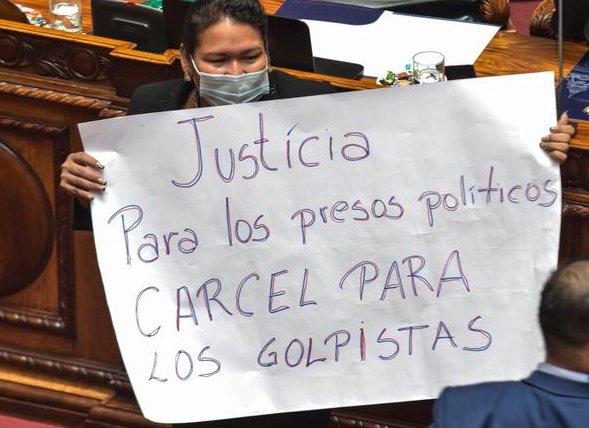 Justícia
Para los presos políticos
CARCEL PARA
LOS GOLPISTAS